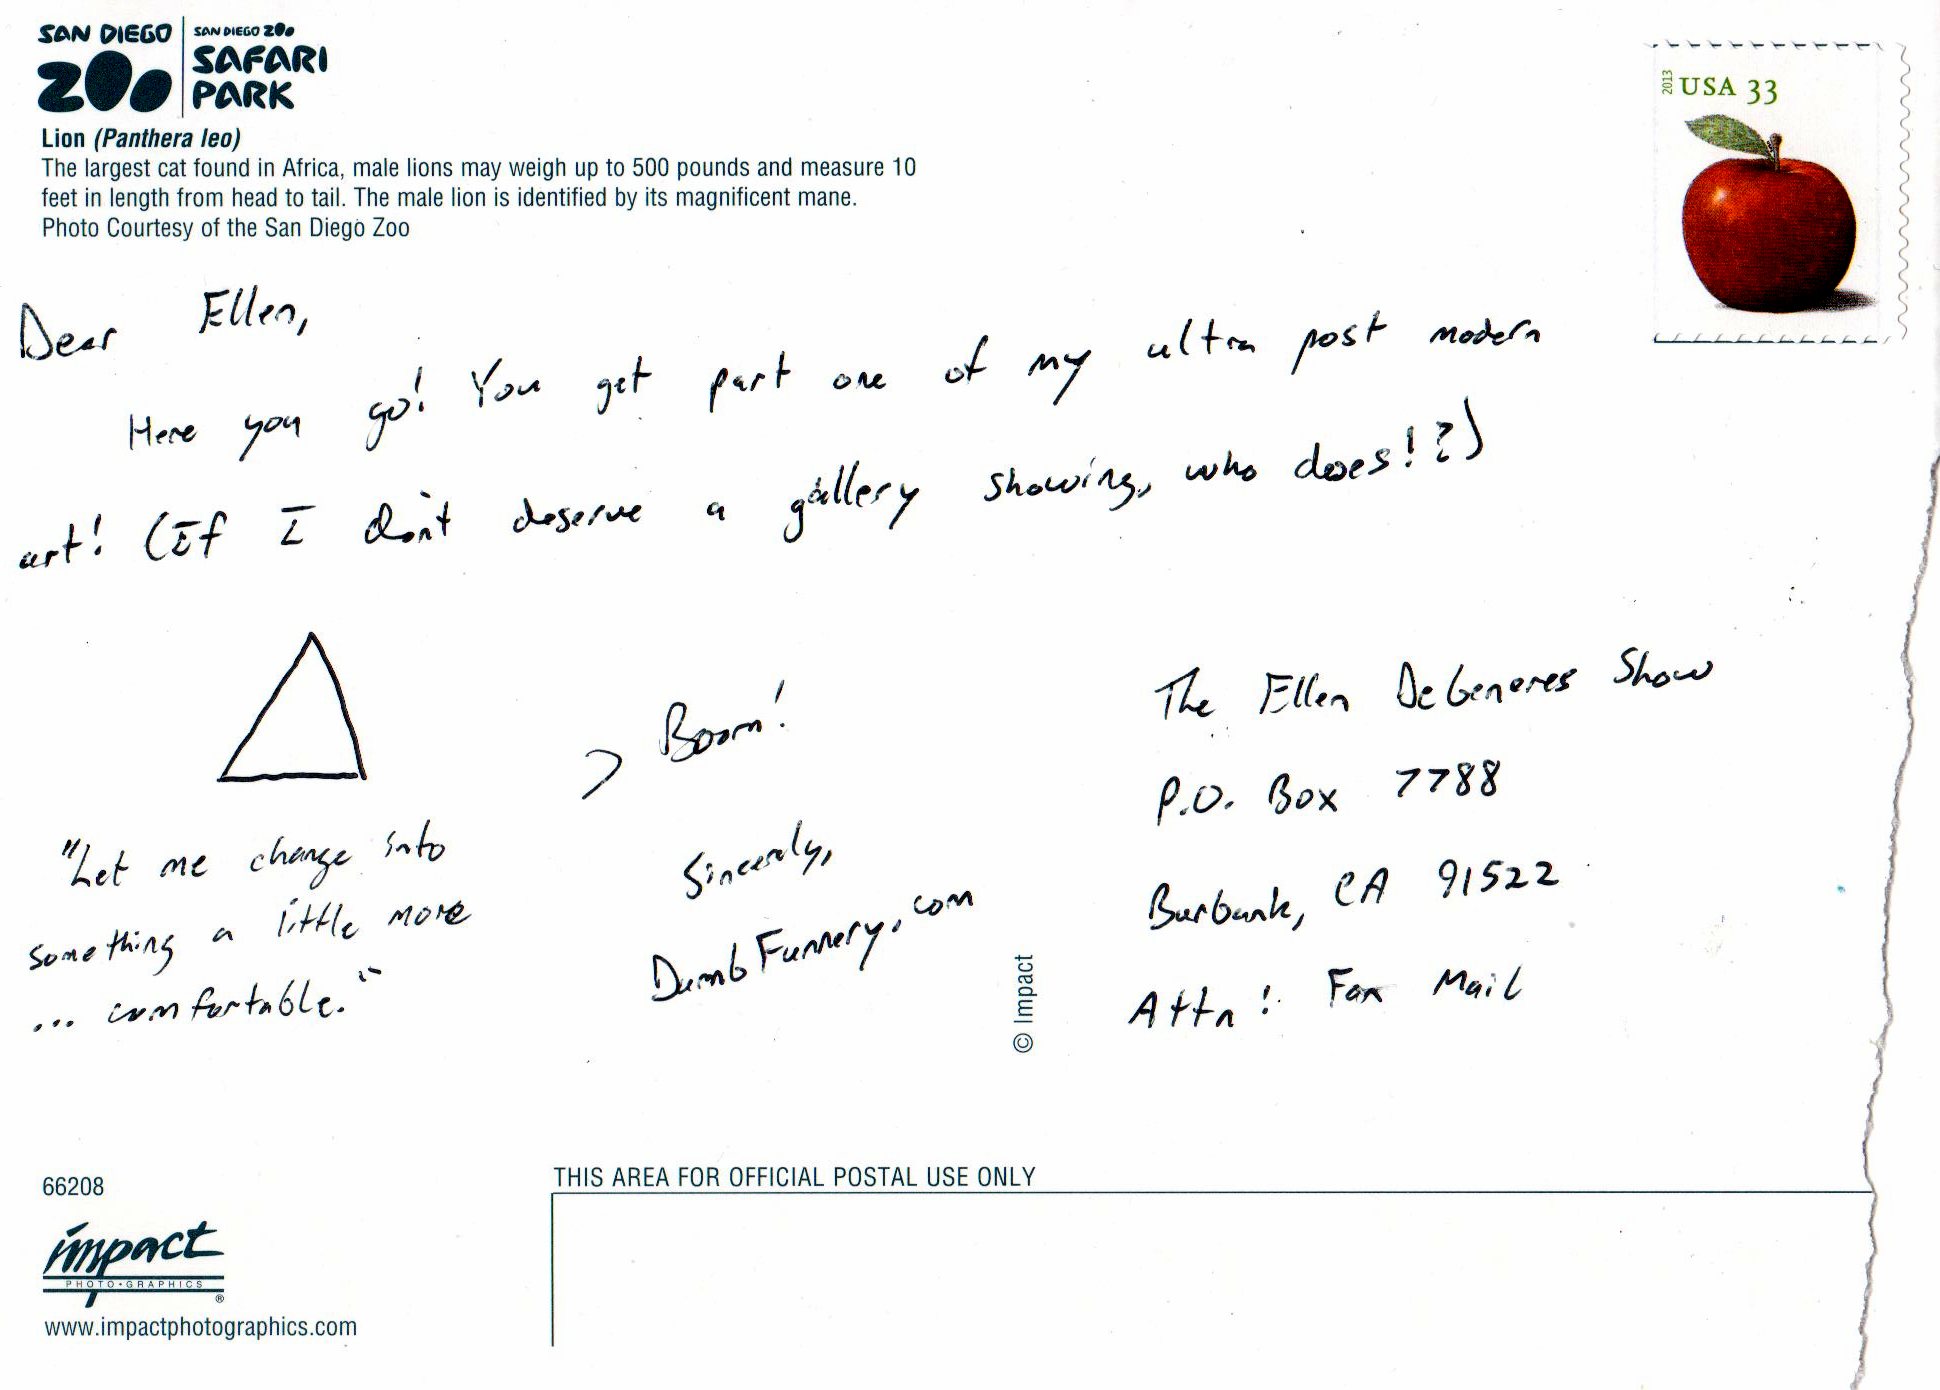 SAN DIEGO ZOO
SAN DIEGO ZOO SAFARI PARK
Lion (Panthera leo)
The largest cat found in Africa, male lions may weigh up to 500 pounds and measure 10
feet in length from head to tail. The male lion is identified by its magnificent mane.
Photo Courtesy of the San Diego Zoo
2013 USA 33
Dear Ellen,
Here you go! You get part one of my ultra post modern
art! (If I don't deserve a gallery showing, who does!?)
"Let me change into
something a little more
... comfortable."
> Boom!
Sincerely,
DumbFunnery.com
© Impact
The Ellen DeGeneres Show
P.O. Box 7788
Burbank, CA 91522
Attn: Fan Mail
66208
impact
PHOTO•GRAPHICS
®
www.impactphotographics.com
THIS AREA FOR OFFICIAL POSTAL USE ONLY